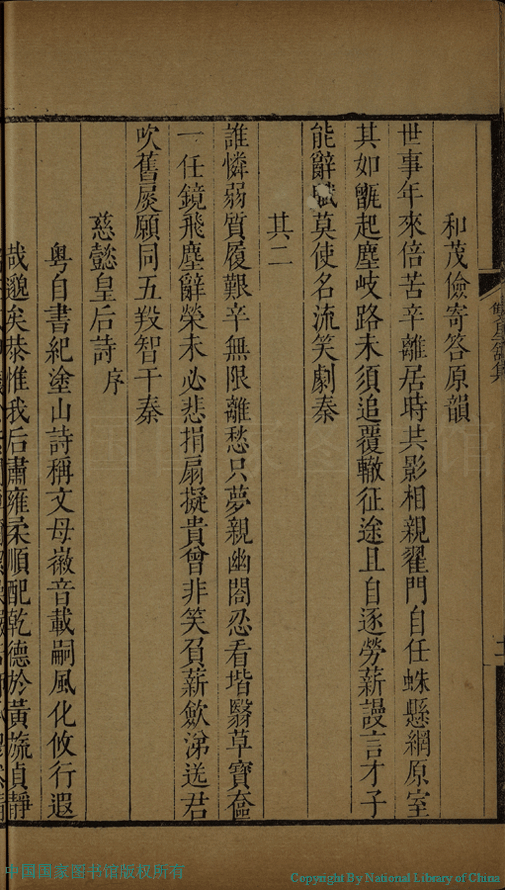 和茂儉寄答原韻
世事年來倍苦辛離居時共影相親翟門自任蛛懸網原室
其如甑起塵岐路未須追覆轍征途且自逐勞薪謾言才子
能辭賦莫使名流笑劇秦
其二
誰憐弱質履艱辛無限離愁只夢親幽閤忍看堦翳草寶奩
一任鏡飛塵辭榮未必悲捐扇擬貴曾非笑負薪歛涕送君
吹舊屐願同五羖智干秦
慈懿皇后詩序
粤自書紀塗山詩稱文母徽音載嗣風化攸行遐
哉邈矣恭惟我后肅雍柔順配乾德於黃流貞靜
中国国家图书馆版权所有
Copyright By National Library of China